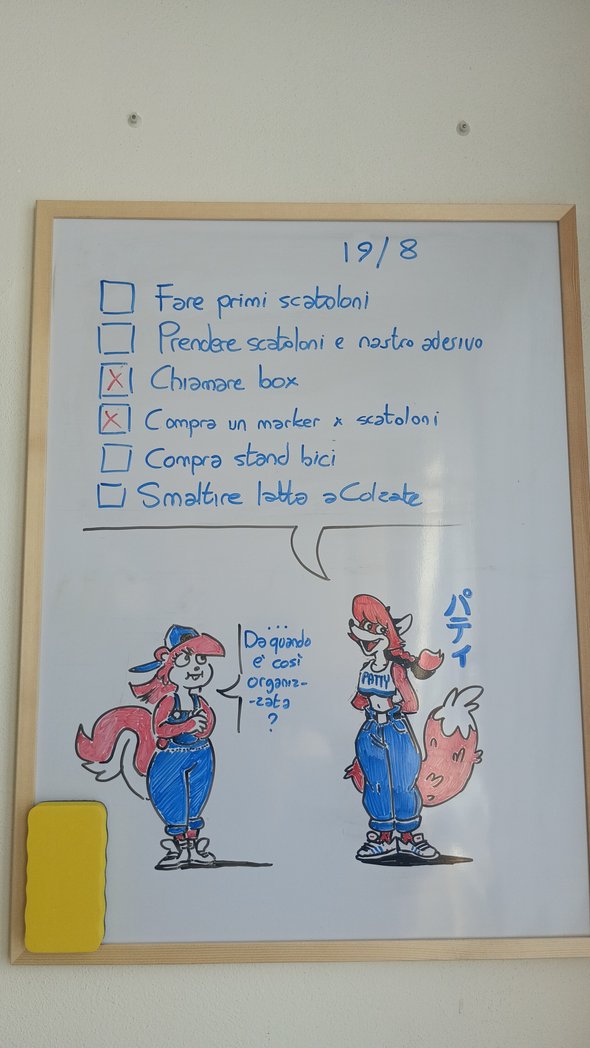 19/8
Fare primi scatoloni
Prendere scatoloni e nastro adesivo
Chiamare box
Compra un marker x scatoloni
Compra stand bici
Smaltire latta a Colzate
...
Da quando
e' così
organiz-
-zata
?
PATTY
パティ